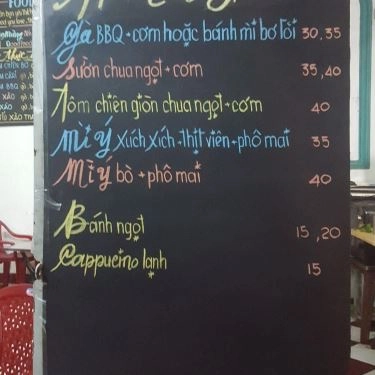 Gà BBQ + cơm hoặc bánh mì bơ tỏi 30,35
Sườn chua ngọt + cơm 35,40
Tôm chiên giòn chua ngọt + cơm 40
Mì Ý xúch xích + thịt viên + phô mai 35
Mì Ý bò + phô mai 40
Bánh ngọt 15,20
Cappucino lạnh 15